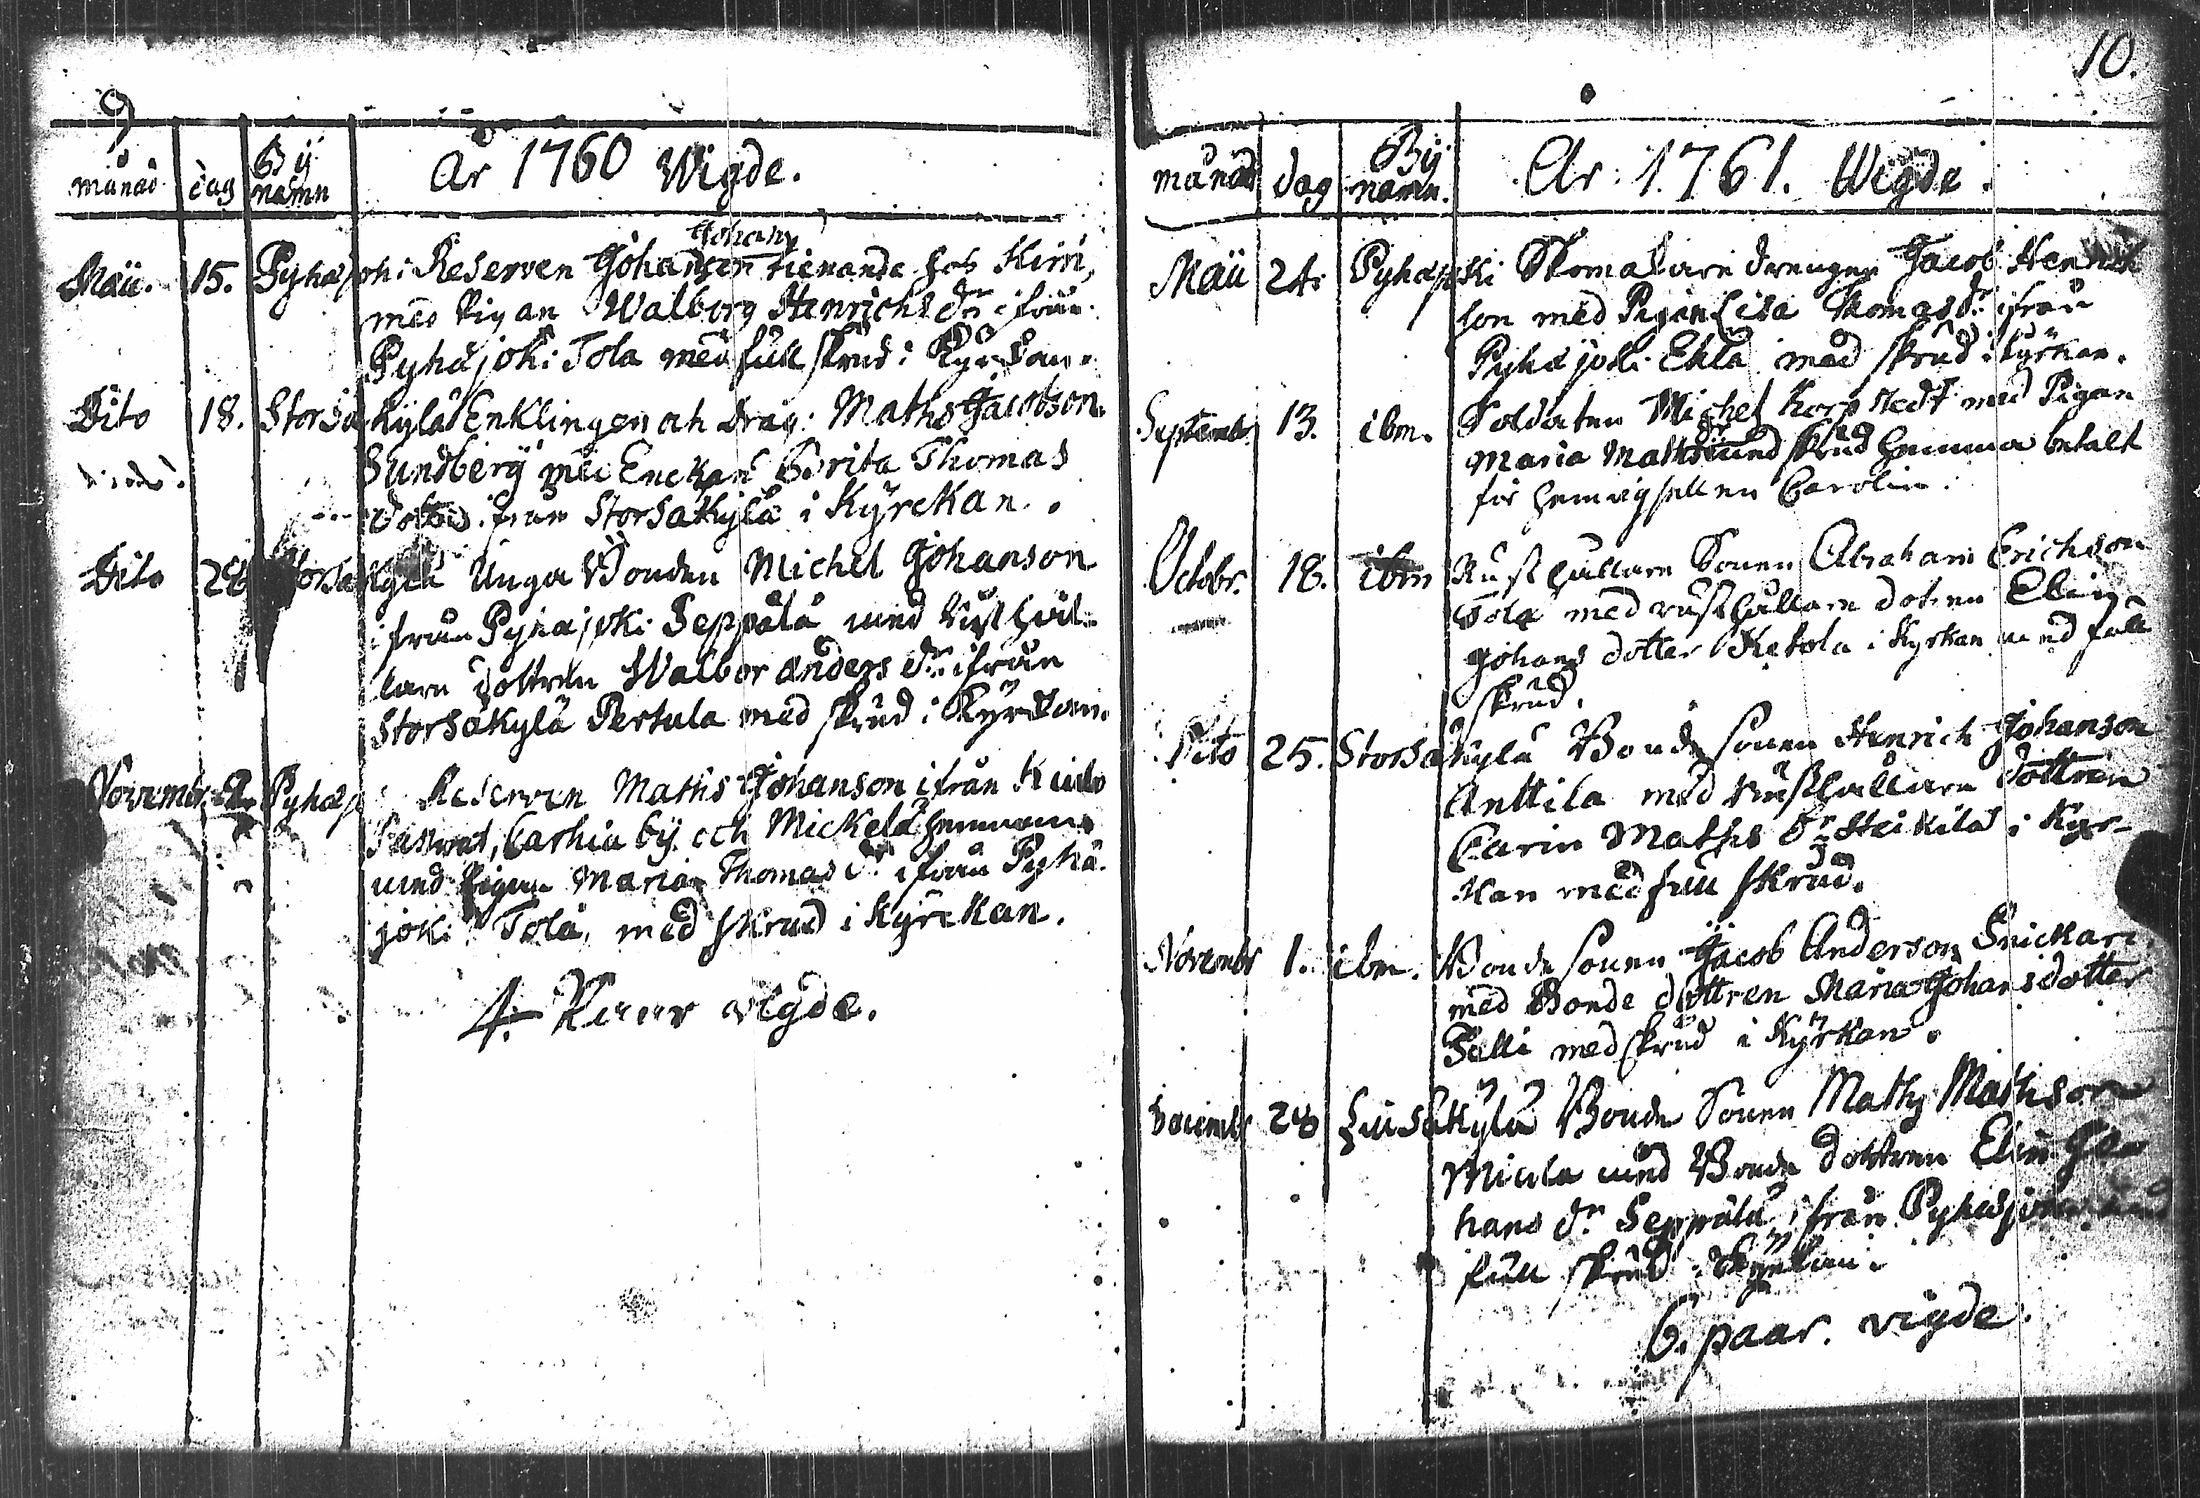 9
månad dag By namn År 1760 Wigde.
Johan
Maii. 15. Pyhäjoki Reserven Johanson tienande hos Kirri,
med Pigan Walborg Henrichs dr ifrån
Pyhäjoki Tola med full skrud i Kyrckan.
Dito 18. Storsäkylä Enklingen och Drag: Maths Jacobson
Sundberg med Enckan Brita Thomas
dotter ifrån Storsäkylä i Kyrckan.
Dito 26 Storsäkylä Unga Bonden Michel Johanson
ifrån Pyhäjoki Seppälä med Rusthål-
lare dottren Walbor Anders dr ifrån
Storsäkylä Pertula med skrud i Kyrckan.
November 2. Pyhäj Reserven Maths Johanson ifrån
by och Mickelä hemman
med Pigan Maria Thomas dr ifrån Pyhä-
joki Tola, med skrud i Kyrckan.
4. Paar vigde.
10.
månad dag By namn. År 1761. Wigde.
Maii 24. Pyhäjoki Skomakare drengen Jacob Henrich
son med Pigan Lisa Thomas dr ifrån
Pyhäjoki Ehla med skrud i Kyrkan.
Septembr 13. ibm. Soldaten Michel Korpstedt med Pigan
Maria Maths dr med skrud hemma betalt
för hemvigselen Carolin.
Octobr. 18. ibm Rusthållare Sonen Abraham Erichson
Tola med rusthållare dotren Elin
Johans dotter Ketola i Kyrkan med full
skrud.
Dito 25. Storsäkylä Bonde sonen Henrich Johanson
Anttila med Rusthållare dottren
Carin Maths dr Heikilä i Kyr-
kan med full skrud.
Novembr 1. ibm. Bonde sonen Jacob Anderson Snickari
med Bonde dottren Maria Johansdotter
Palli med skrud i Kyrkan.
28 Lillsäkylä Bonde Sonen Maths Mathson
Micola med Bonde dottren Elin Jo-
hans dr Seppälä ifrån Pyhäjoki
full skrud i Kyrkan.
6. paar. vigde.